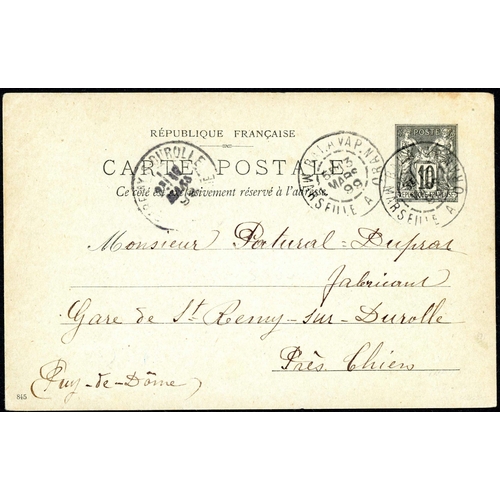 RÉPUBLIQUE FRANÇAISE
CARTE POSTALE
Ce côté est exclusivement réservé à l'adresse
MARS
99
MARSEILLE A
10
Monsieur Patural=Duprat
fabricant
Gare de St Remy-sur-Durolle
Près Thiers
(Puy-de-Dôme)
845